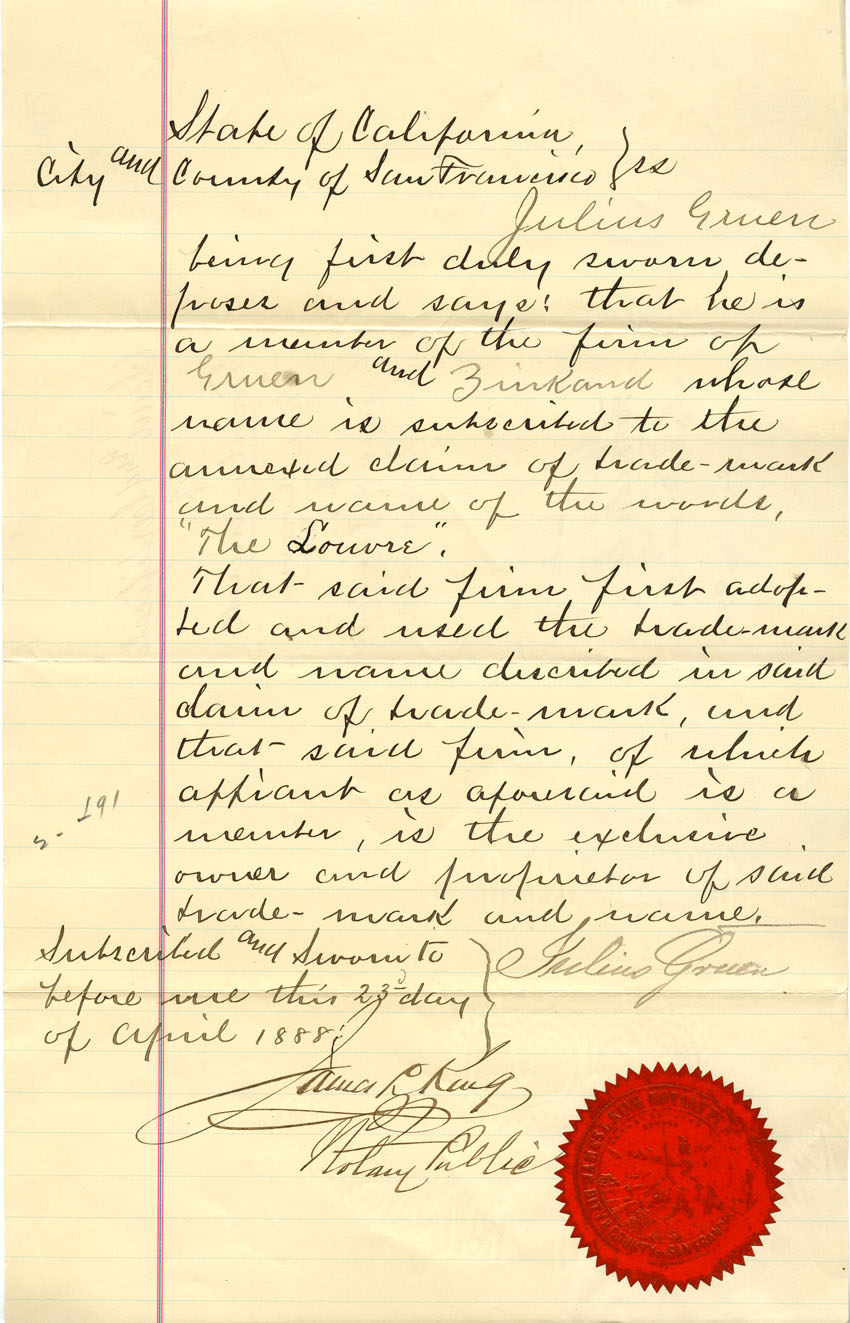 State of California,
City and County of San Francisco } ss
Julius Gruen
being first duly sworn de-
poses and says: that he is
a member of the firm of
Gruen and Zinkand whose
name is subscribed to the
annexed claim of trade-mark
and name of the words,
"The Louvre".
That said firm first adop-
ted and used the trade-mark
and name described in said
claim of trade-mark, and
that said firm, of which
affiant as aforesaid is a
member, is the exclusive
owner and proprietor of said
trade-mark and name.
Subscribed and Sworn to
before me this 23d day
of April 1888.
Julius Gruen
James L. King
Notary Public
JAMES L. KING NOTARY PUBLIC
CITY & COUNTY OF SAN FRANCISCO
191